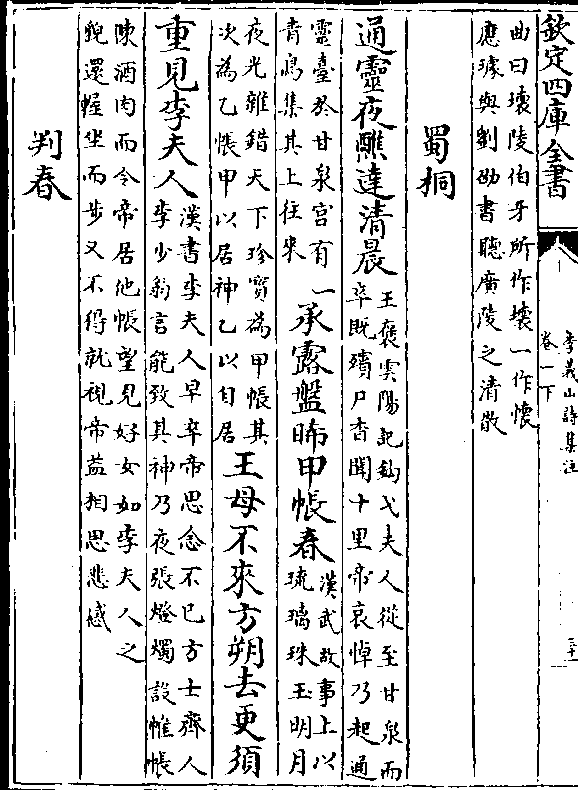 欽定四庫全書
李義山詩集注
卷一下
曲曰壞陵伯牙所作壞一作懷
應璩與劉劭書聽廣陵之清散
蜀桐
通靈夜醮達清晨
王褒雲陽記鉤弋夫人從至甘泉而
卒既殯尸香聞十里帝哀悼乃起通
靈臺於甘泉宮有
青鳥集其上往來
一承露盤晞甲帳春
漢武故事上以
琉璃珠玉明月
夜光雜錯天下珍寶為甲帳其
次為乙帳甲以居神乙以自居
王母不來方朔去更須
重見李夫人
漢書李夫人早卒帝思念不已方士齊人
李少翁言能致其神乃夜張燈燭設帷帳
陳酒肉而令帝居他帳望見好女如李夫人之
貌還幄坐而步又不得就視帝益相思悲感
判春